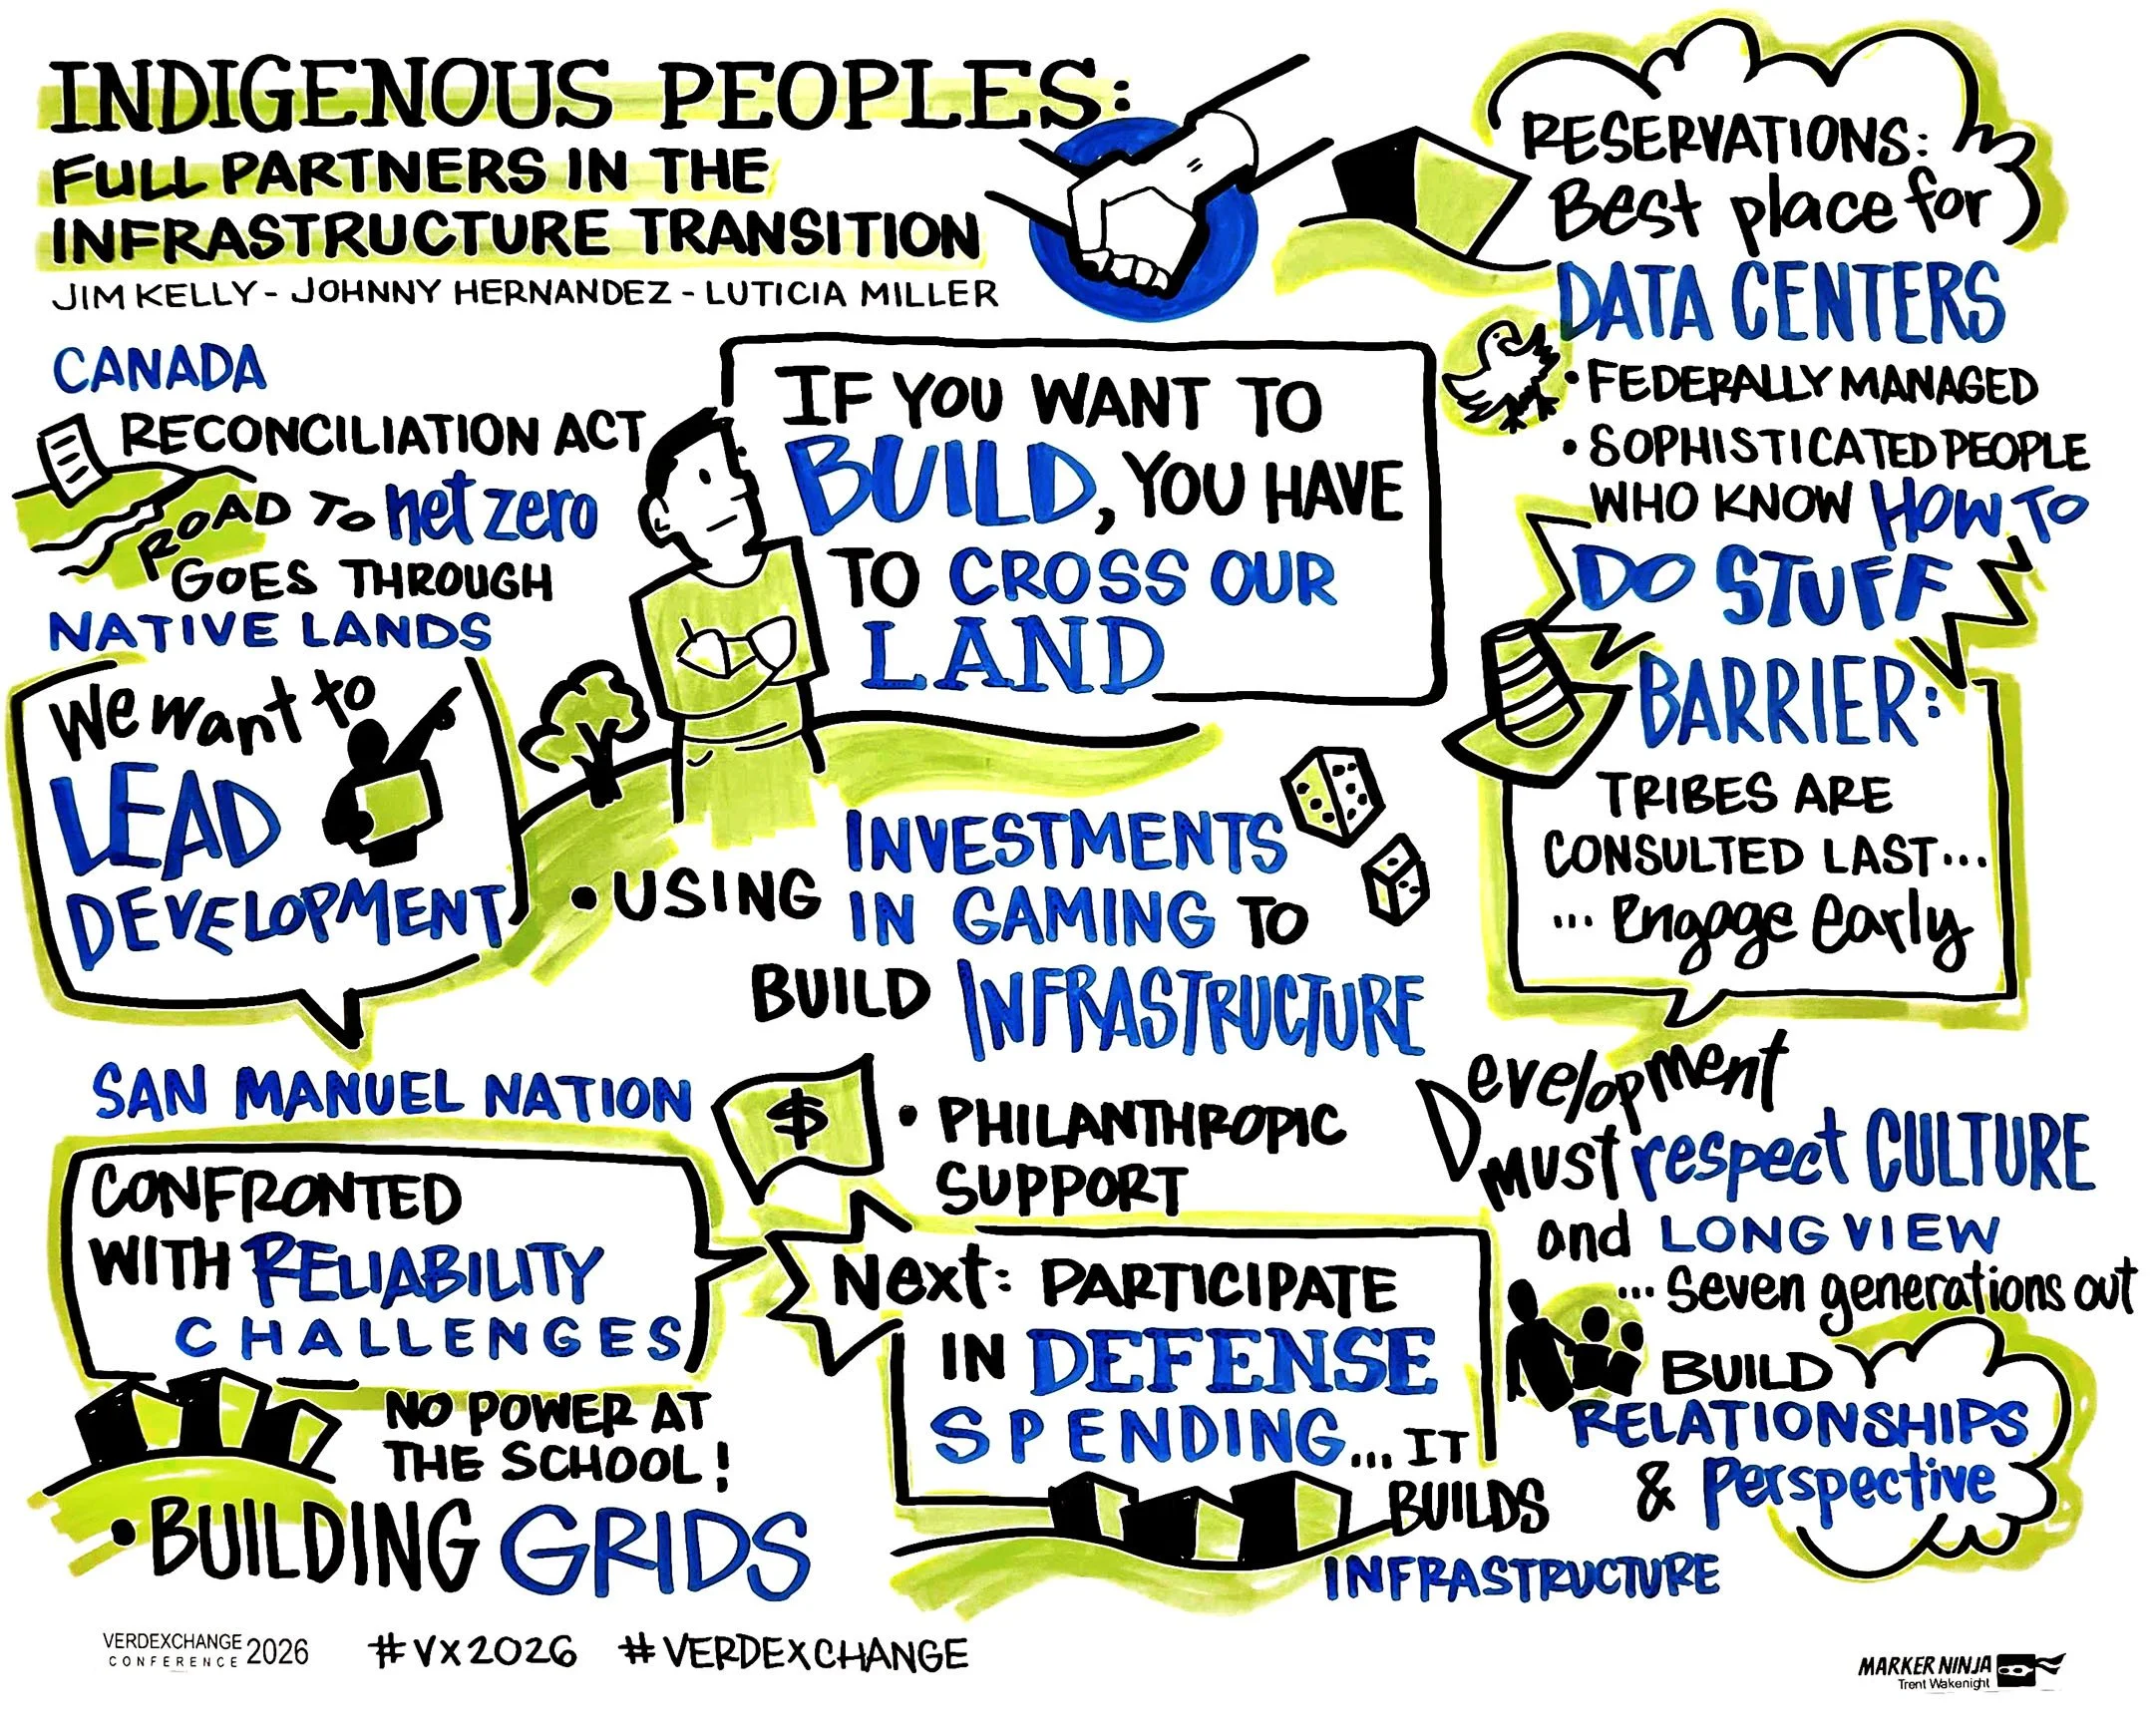 INDIGENOUS PEOPLES:
FULL PARTNERS IN THE
INFRASTRUCTURE TRANSITION
JIM KELLY - JOHNNY HERNANDEZ - LUTICIA MILLER
CANADA
RECONCILIATION ACT
ROAD TO net zero
GOES THROUGH
NATIVE LANDS
We want to
LEAD
DEVELOPMENT
SAN MANUEL NATION
CONFRONTED
WITH RELIABILITY
CHALLENGES
NO POWER AT
THE SCHOOL!
• BUILDING GRIDS
IF YOU WANT TO
BUILD, YOU HAVE
TO CROSS OUR
LAND
• USING INVESTMENTS
IN GAMING TO
BUILD INFRASTRUCTURE
$
• PHILANTHROPIC
SUPPORT
Next: PARTICIPATE
IN DEFENSE
SPENDING... IT
BUILDS
INFRASTRUCTURE
RESERVATIONS:
Best place for
DATA CENTERS
• FEDERALLY MANAGED
• SOPHISTICATED PEOPLE
WHO KNOW HOW TO
DO STUFF
BARRIER:
TRIBES ARE
CONSULTED LAST...
... Engage early
Development
must respect CULTURE
and LONG VIEW
... Seven generations out
BUILD
RELATIONSHIPS
& Perspective
VERDEXCHANGE
CONFERENCE 2026
#VX2026 #VERDEXCHANGE
MARKER NINJA
Trent Wakenight